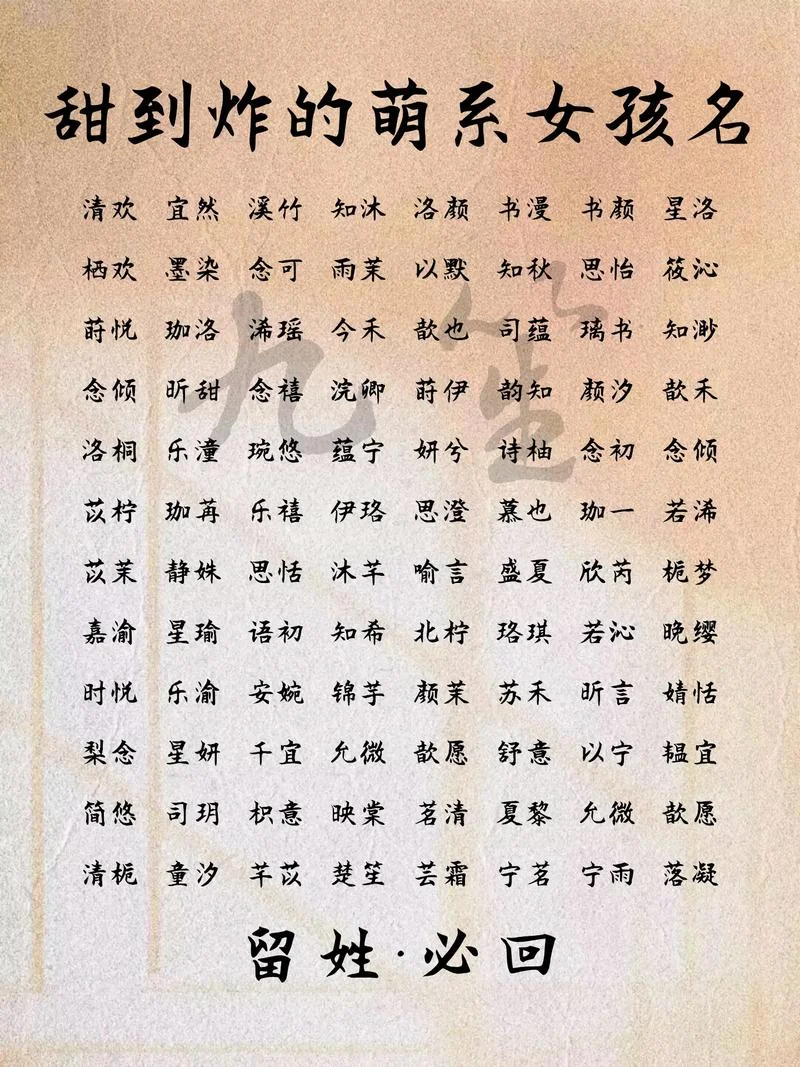 甜到炸的萌系女孩名
清欢 宜然 溪竹 知沐 洛颜 书漫 书颜 星洛
栖欢 墨染 念可 雨茉 以默 知秋 思怡 筱沁
莳悦 珈洛 浠瑶 今禾 歆也 司蕴 璃书 知渺
念倾 昕甜 念禧 浣卿 莳伊 韵知 颜汐 歆禾
洛桐 乐潼 琬悠 蕴宁 妍兮 诗柚 念初 念倾
苡柠 珈苒 乐禧 伊珞 思澄 慕也 珈一 若浠
苡茉 静姝 思恬 沐芊 喻言 盛夏 欣芮 栀梦
嘉渝 星瑜 语初 知希 北柠 珞琪 若沁 晚缨
时悦 乐渝 安婉 锦芋 颜茉 苏禾 昕言 婧恬
梨念 星妍 千宜 允微 歆愿 舒意 以宁 韫宜
简悠 司玥 枳意 映棠 茗清 夏黎 允微 歆愿
清栀 童汐 芊苡 楚笙 芸霜 宁茗 宁雨 落凝
九笙
留姓·必回